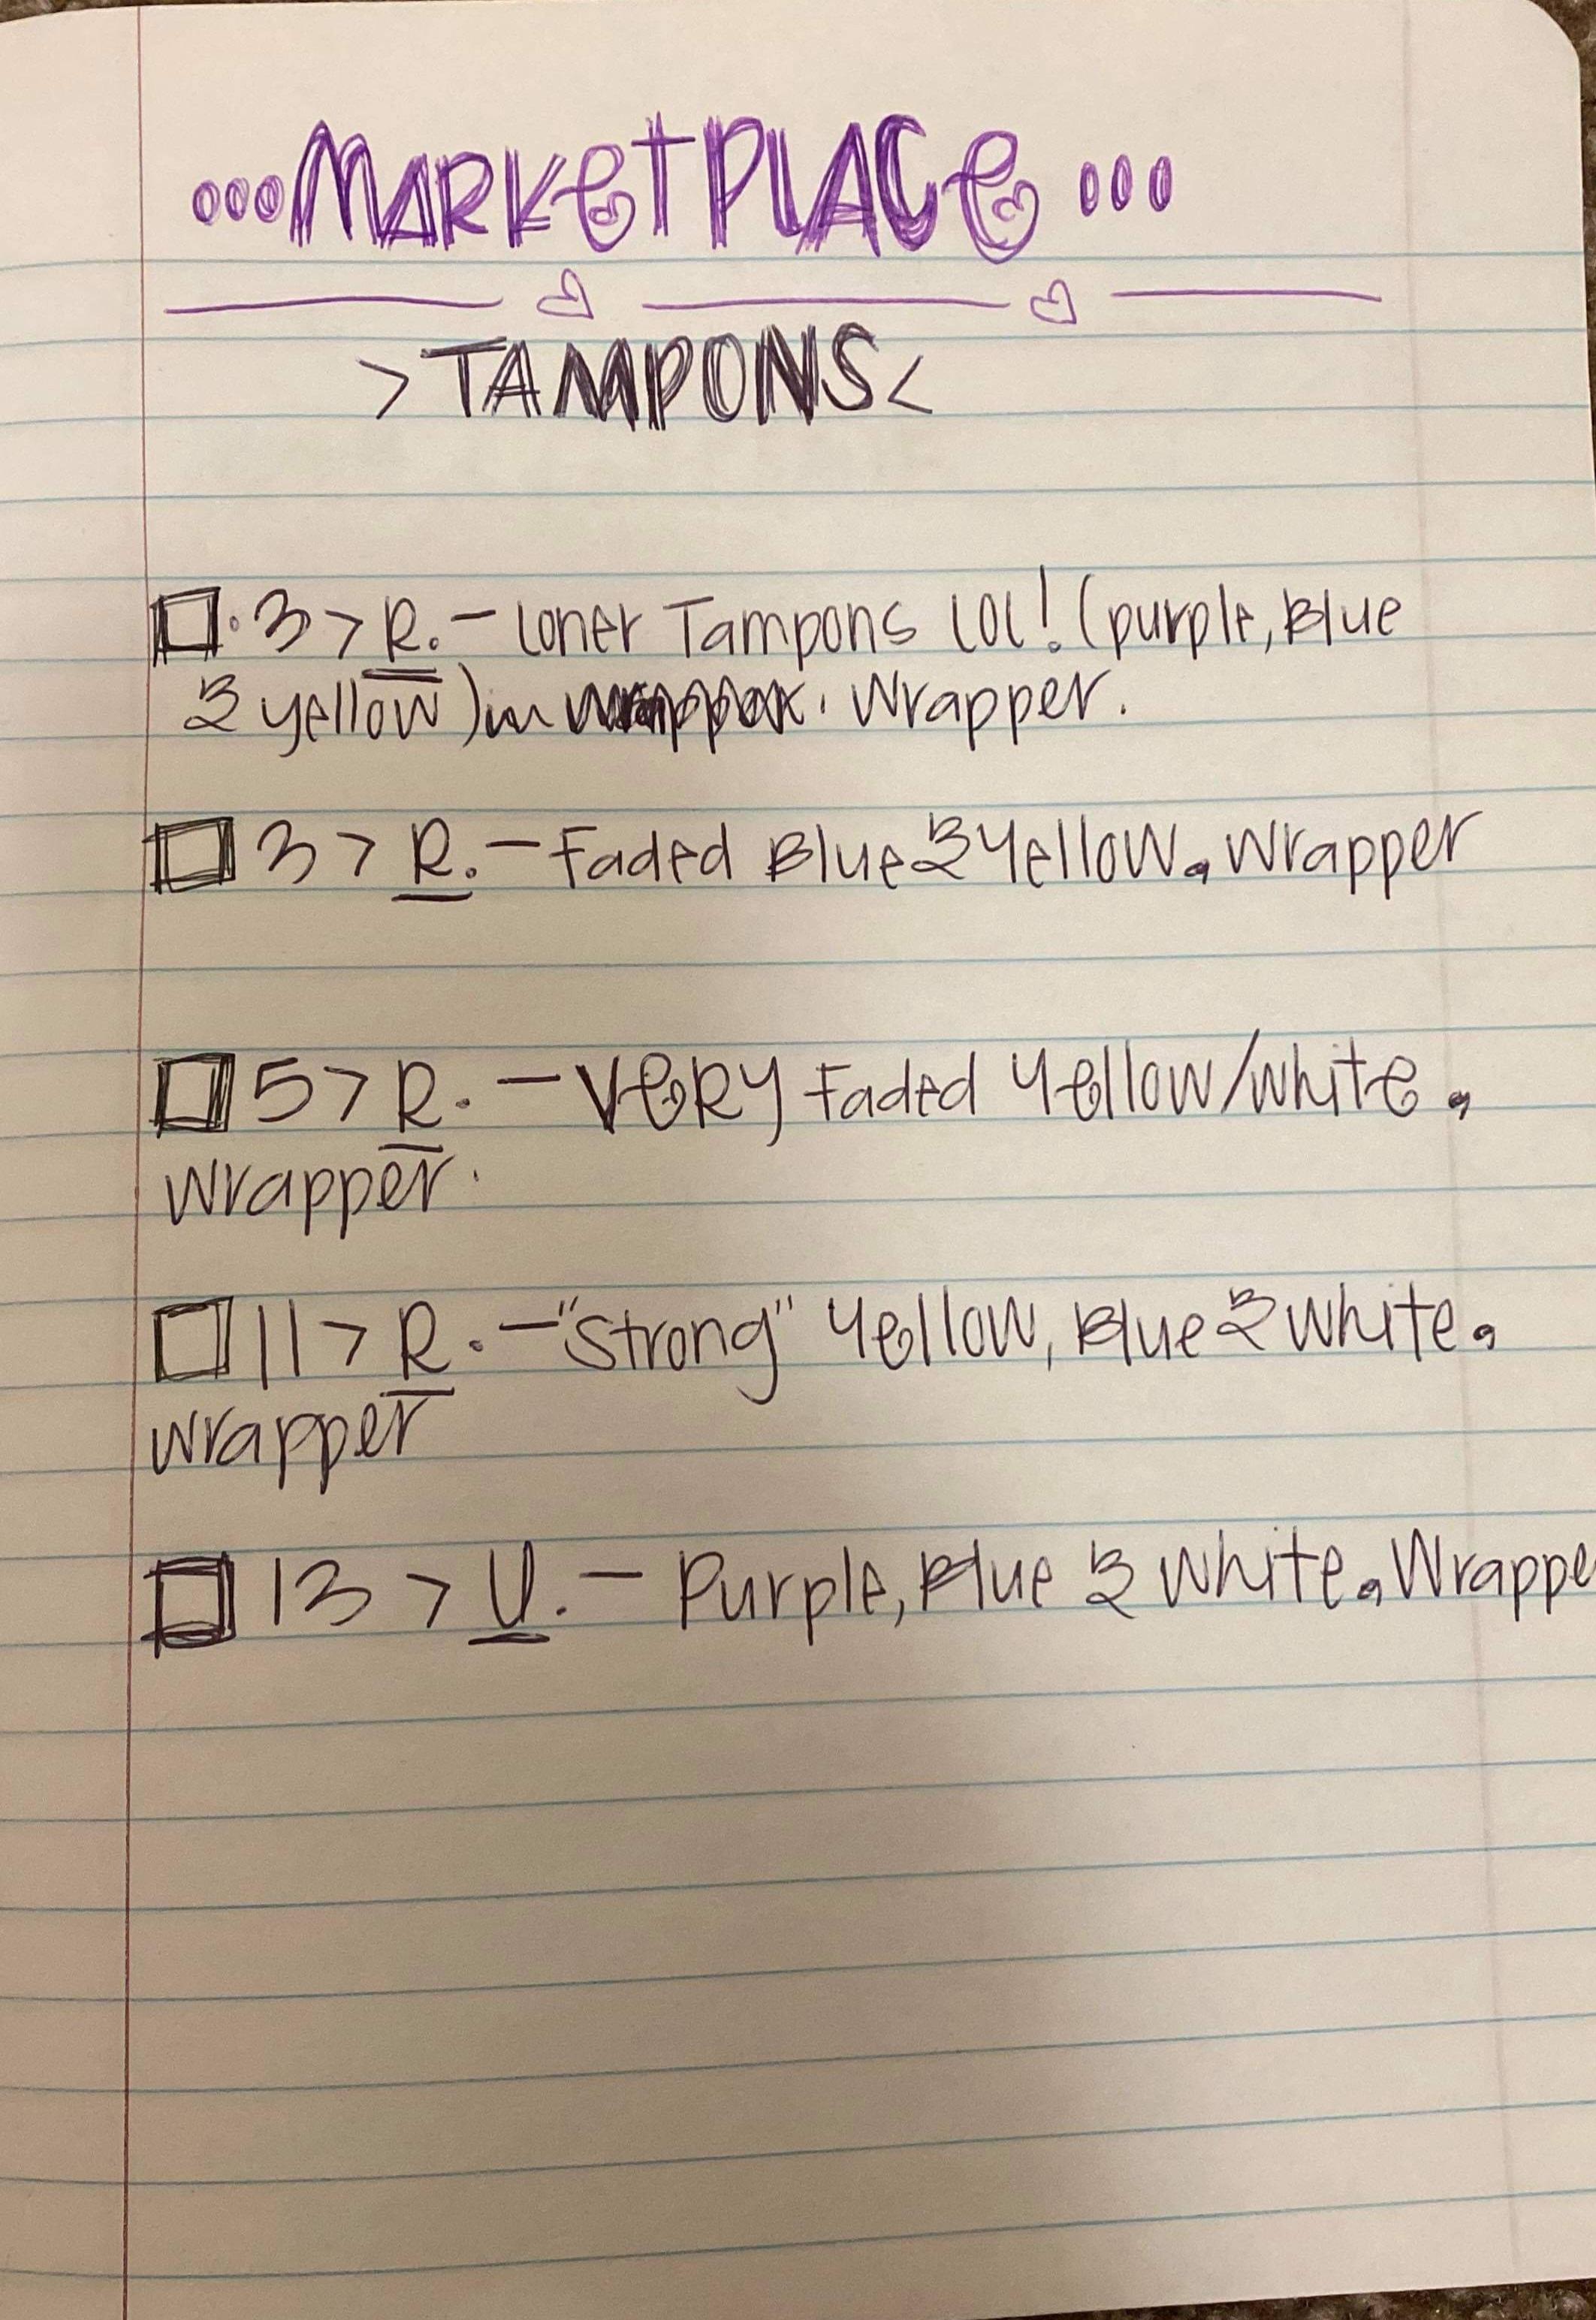 ...MARKETPLACE...
>TAMPONS<
3 > R. - Loner Tampons LOL! (purple, Blue
& yellow) in wrapper. Wrapper.
3 > R. - Faded Blue & Yellow. Wrapper
5 > R. - VERY Faded Yellow/White.
Wrapper.
11 > R. - "Strong" Yellow, Blue & White.
Wrapper
13 > U. - Purple, Blue & White. Wrappe